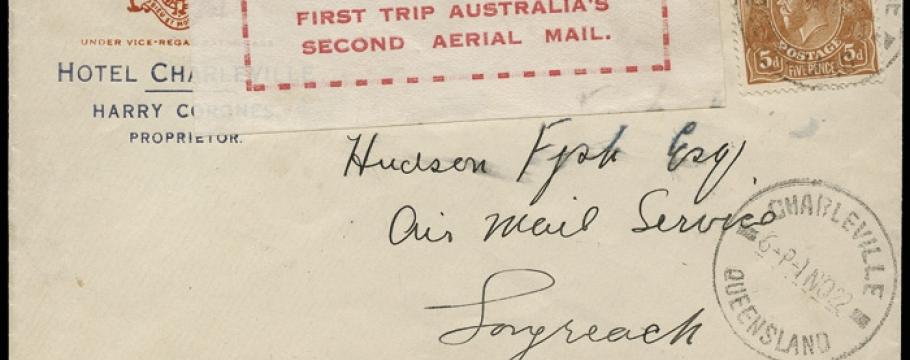 FIRST TRIP AUSTRALIA'S
SECOND AERIAL MAIL.
UNDER VICE-REGAL PATRONAGE
HOTEL CHARLEVILLE
HARRY CORONES,
PROPRIETOR.
POSTAGE
5d 5d
FIVE PENCE
Hudson Fysh Esq
Air Mail Service
Longreach
CHARLEVILLE
6-P-1 NO 22
QUEENSLAND